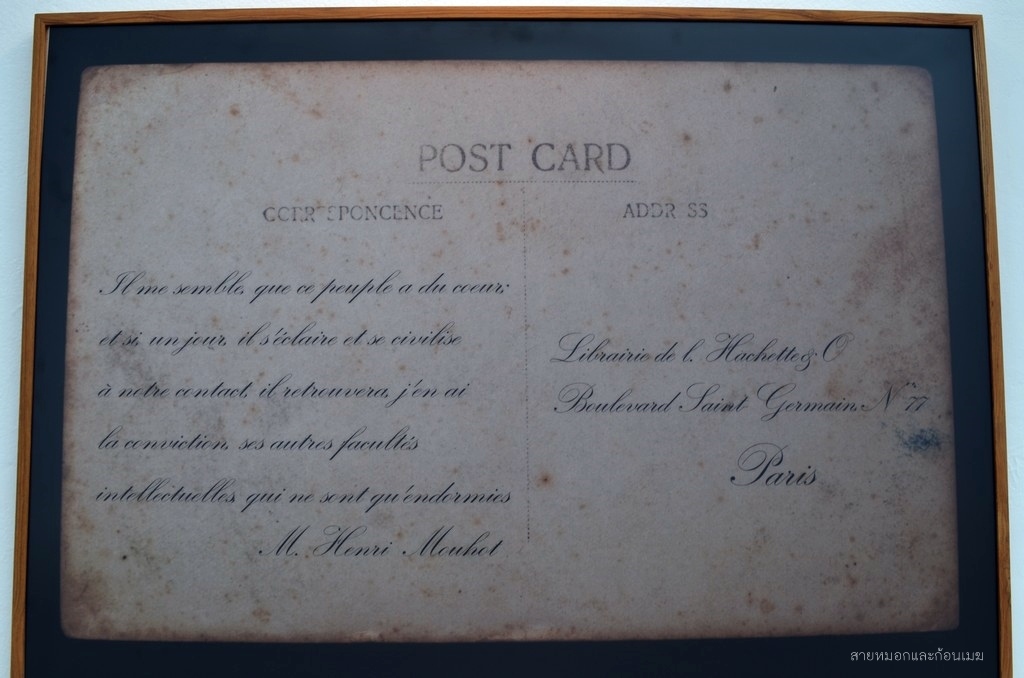 POST CARD
CORRESPONDENCE
ADDR SS
Il me semble, que ce peuple a du coeur;
et si, un jour, il s'éclaire et se civilise
à notre contact, il retrouvera, j'en ai
la conviction, ses autres facultés
intellectuelles, qui ne sont qu'endormies
M. Henri Mouhot
Librairie de L. Hachette & C
Boulevard Saint Germain, N° 77
Paris
สายหมอกและก้อนเมฆ